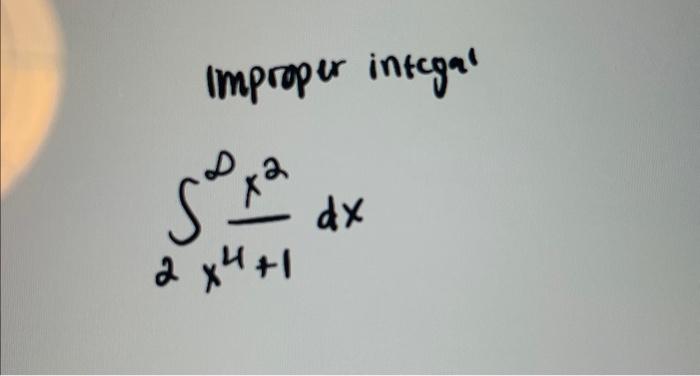 Improper integal
∫₂^∞ x²/(x⁴+1) dx